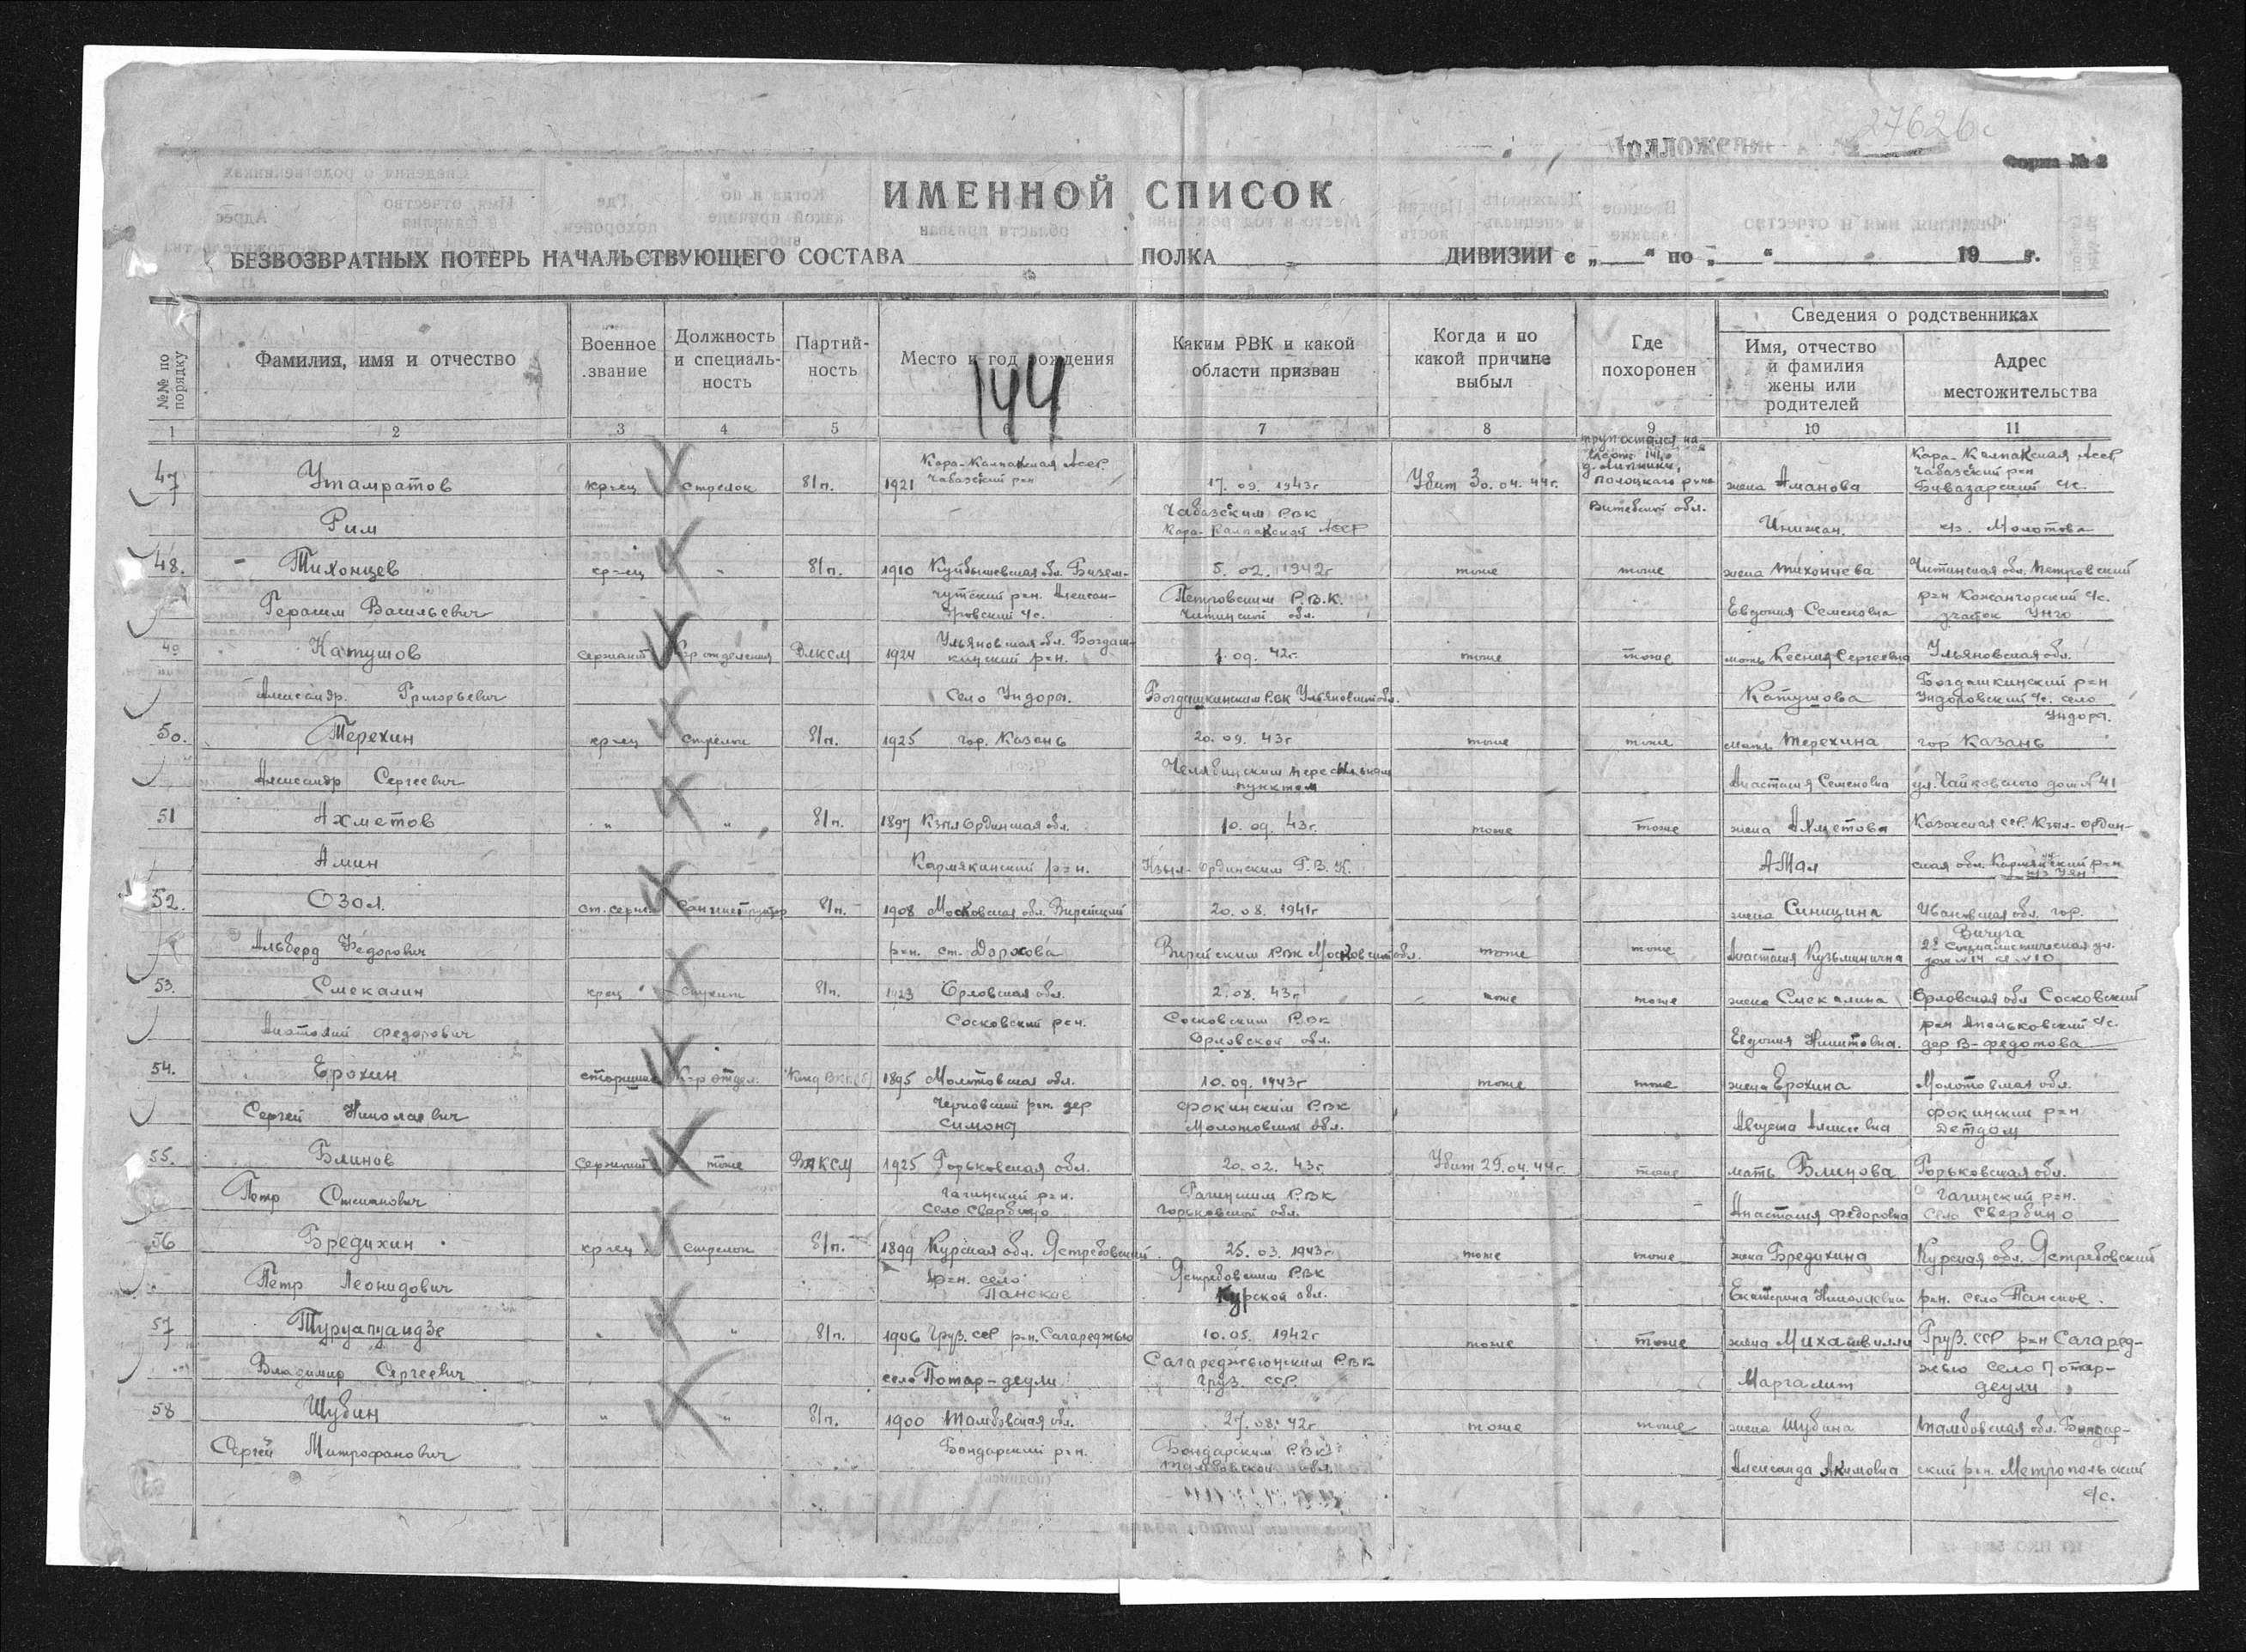 27626с
Приложение
Форма № 2
ИМЕННОЙ СПИСОК
БЕЗВОЗВРАТНЫХ ПОТЕРЬ НАЧАЛЬСТВУЮЩЕГО СОСТАВА ПОЛКА ДИВИЗИИ с „ “ по „ “ 19 г.
№№ по порядку
Фамилия, имя и отчество
Военное звание
Должность и специаль-ность
Партий-ность
Место и год рождения
Каким РВК и какой области призван
Когда и по какой причине выбыл
Где похоронен
Сведения о родственниках
Имя, отчество и фамилия жены или родителей
Адрес местожительства
144
1 2 3 4 5 6 7 8 9 10 11
47 Утамратов кр-ец стрелок б/п. 1921 Кара-Калпакская АССР Чабазский р-н 17. 09. 1943г Убит 30. 04. 44г. труп остался на д. Липники, Полоцкого р-на жена Аманова Кара-Калпакская АССР Чабазский р-н Бивазарский с/с.
Рим Чабазским РВК Кара-Калпакской АССР Витебской обл. Инижан. Молотова
48. Тихонцев кр-ец - б/п. 1910 Куйбышевская обл. Безен- 5. 02. 1942г тоже тоже жена Тихонцева Читинская обл. Петровский
Герасим Васильевич чугский р-н. Алексан-дровский с/с. Петровским Р.В.К. Читинской обл. Евдокия Семеновна р-н Кожангорский с/с. участок Унго
49 Катушов сержант К-р отделения ВЛКСМ 1924 Ульяновская обл. Богдаш-кинский р-н. 1. 09. 42г. тоже тоже мать Ксения Сергеевна Ульяновская обл.
Александр Григорьевич Село Ундоры. Богдашкинским РВК Ульяновской обл. Катушова Богдашкинский р-н Ундоровский с/с. село Ундоры.
50. Терехин кр-ец стрелок б/п. 1925 гор. Казань 20. 09. 43г тоже тоже мать Терехина гор Казань
Александр Сергеевич Челябинским пересыльным пунктом Анастасия Семеновна ул. Чайковского дом № 41
51 Ахметов " " б/п. 1897 Кзыл Ординская обл. 10. 09. 43г. тоже тоже жена Ахметова Казахская ССР. Кзыл-Ордин-
Амин Кармякинский р-н. Кзыл-Ординским Г.В.К. Атал ская обл. Кармякинский р-н
52. Озол. ст. серж. Санинструктор б/п. 1908 Московская обл. Верейский 20. 08. 1941г жена Синицина Ивановская обл. гор. Вичуга
Альберд Федорович р-н. ст. Дорохова Верейским РВК Московской обл. тоже тоже Анастасия Кузьминична 2я Социалистическая ул. дом № 14 кв. № 10
53. Смекалин кр-ец стрелок б/п. 1923 Орловская обл. 2. 08. 43г тоже тоже жена Смекалина Орловская обл Сосковский
Анатолий Федорович Сосковский р-н. Сосковским РВК Орловской обл. Евдокия Никитовна. р-н Апальковский с/с. дер В-Федотова
54. Ерохин старшина К-р отдел. Канд ВКП(б) 1895 Молотовская обл. 10. 09. 1943г тоже тоже жена Ерохина Молотовская обл.
Сергей Николаевич Черновский р-н. дер Симона Фокинским РВК Молотовской обл. Августа Алексеевна Фокинский р-н Детдом
55. Блинов сержант тоже ВЛКСМ 1925 Горьковская обл. 20. 02. 43г. Убит 29. 04. 44г. тоже мать Блинова Горьковская обл.
Петр Степанович Гагинский р-н. село Свербино Гагинским РВК Горьковской обл. Анастасия Федоровна Гагинский р-н. село Свербино
56 Бредихин кр-ец стрелок б/п. 1899 Курская обл. Ястребовский 25. 03. 1943г тоже тоже жена Бредихина Курская обл. Ястребовский
Петр Леонидович р-н. село Панское Ястребовским РВК Курской обл. Екатерина Николаевна р-н. село Панское.
57 Туруапуандзе " " б/п. 1906 Груз. ССР р-н. Сагареджью 10. 05. 1942г тоже тоже жена Михашвилли Груз. ССР р-н Сагаред-
Владимир Сергеевич село Потар-деули Сагареджьюнским РВК Груз. ССР. Маргалит жью село Потар-деули
58 Шубин " " б/п. 1900 Тамбовская обл. 27. 08. 42г тоже тоже жена Шубина Тамбовская обл. Бондар-
Сергей Митрофанович Бондарский р-н. Бондарским РВК Тамбовской обл. Александа Акимовна ский р-н. Метропольский с/с.